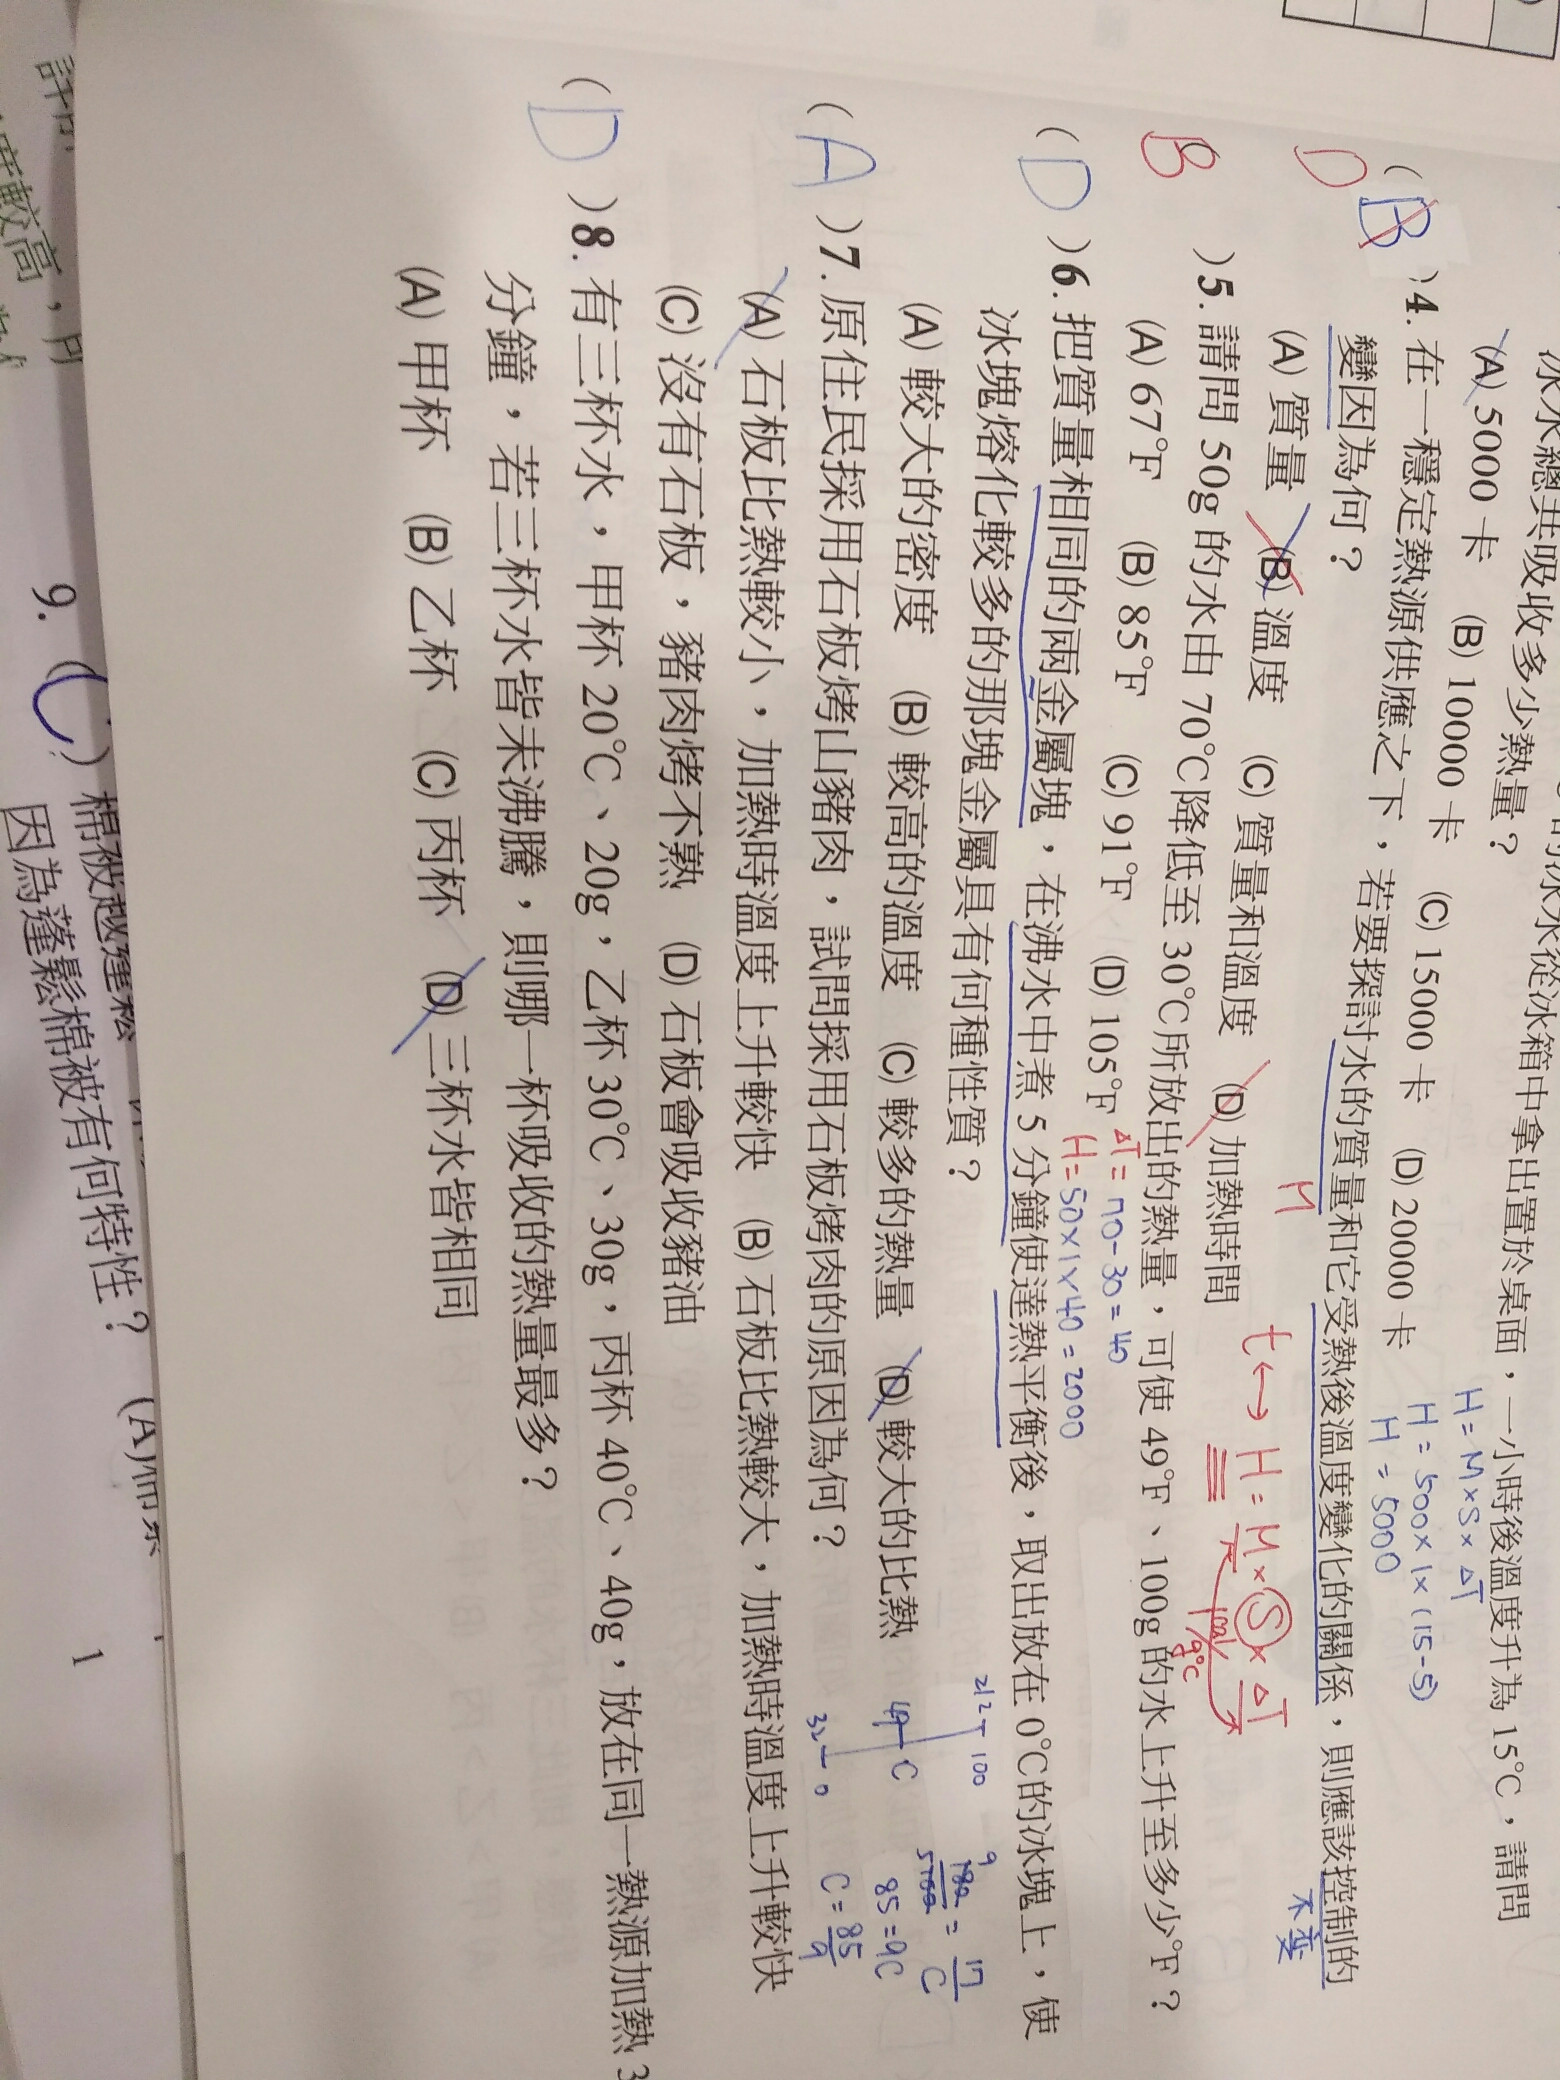 冰水總共吸收多少熱量？
的冰水從冰箱中拿出置於桌面，一小時後溫度升為 15℃，請問
(A) 5000 卡 (B) 10000 卡 (C) 15000 卡 (D) 20000 卡
H = M × S × ΔT
H = 500 × 1 × (15-5)
H = 5000
(B)4. 在一穩定熱源供應之下，若要探討水的質量和它受熱後溫度變化的關係，則應該控制的
D
變因為何？
M
不變
(A) 質量 (B) 溫度 (C) 質量和溫度 (D) 加熱時間
t ↔ H = M × S × ΔT
cal/g℃
B )5. 請問 50g 的水由 70℃降低至 30℃所放出的熱量，可使 49℉、100g 的水上升至多少℉？
(A) 67℉ (B) 85℉ (C) 91℉ (D) 105℉
ΔT = 70-30 = 40
H = 50×1×40 = 2000
(D)6. 把質量相同的兩金屬塊，在沸水中煮 5 分鐘使達熱平衡後，取出放在 0℃的冰塊上，使
冰塊熔化較多的那塊金屬具有何種性質？
(A) 較大的密度 (B) 較高的溫度 (C) 較多的熱量 (D) 較大的比熱
212 100
49 C
32 0
9
180
5 100
= 17/C
85 = 9C
C = 85/9
(A)7. 原住民採用石板烤山豬肉，試問採用石板烤肉的原因為何？
(A) 石板比熱較小，加熱時溫度上升較快 (B) 石板比熱較大，加熱時溫度上升較快
(C) 沒有石板，豬肉烤不熟 (D) 石板會吸收豬油
(D)8. 有三杯水，甲杯 20℃、20g，乙杯 30℃、30g，丙杯 40℃、40g，放在同一熱源加熱 3
分鐘，若三杯水皆未沸騰，則哪一杯吸收的熱量最多？
(A) 甲杯 (B) 乙杯 (C) 丙杯 (D) 三杯水皆相同
9. (C) 棉被越蓬鬆
因為蓬鬆棉被有何特性？ (A)
1
度較高，所